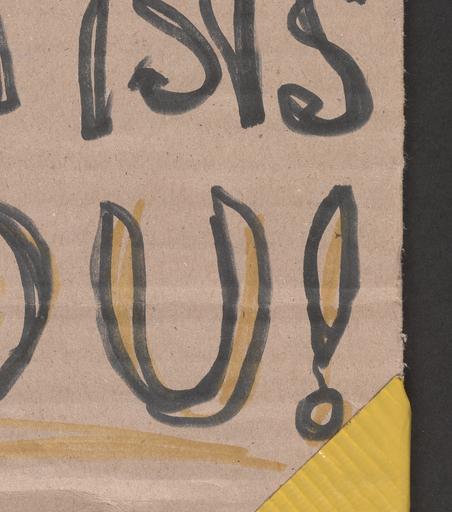 ISIS
OU!